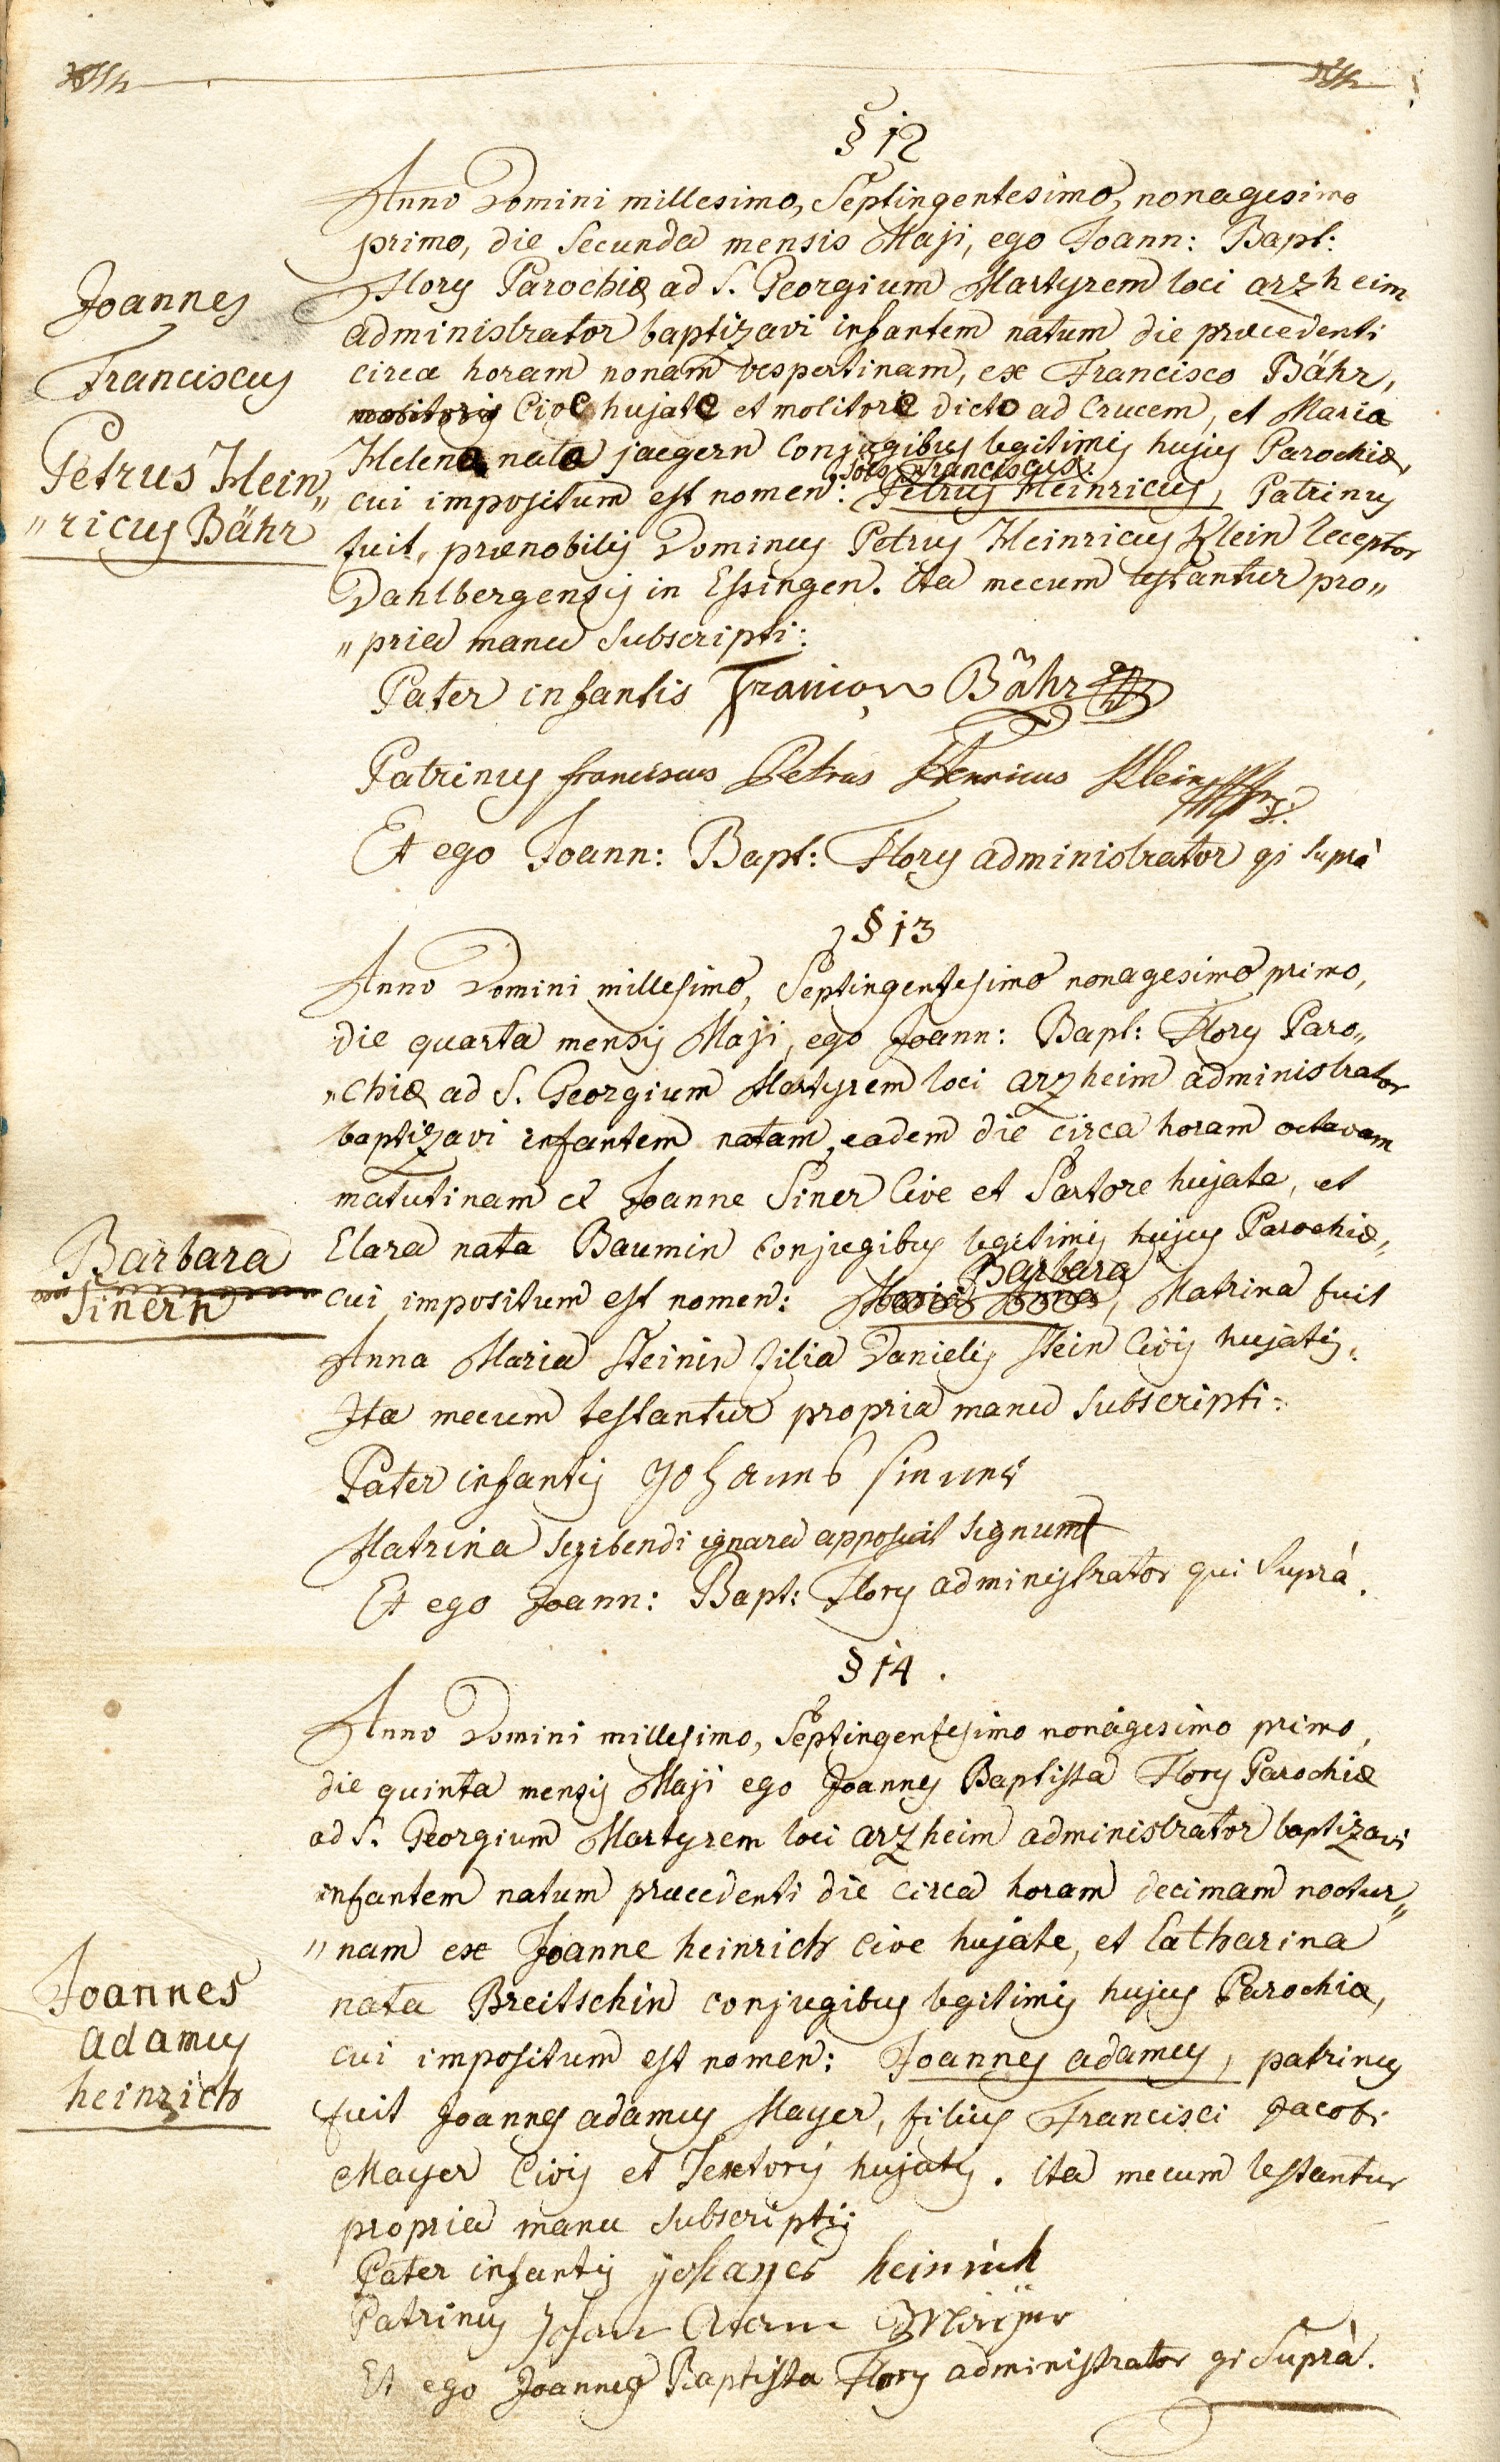 § 12
Anno Domini millesimo, Septingentesimo, nonagesimo
primo, die Secunda mensis Maji, ego Joann: Bapt:
Flory Parochiæ ad S. Georgium Martyrem loci arzheim
administrator baptizavi infantem natum die præcedenti
circa horam nonam vespertinam, ex Francisco Bähr,
Cive hujate et molitore dicto ad Crucem, et Maria
Helena nata jaegern Conjugibus legitimis hujus Parochiæ,
Joes Franciscus
cui impositum est nomen: Petrus Heinricus, Patrinus
fuit, prænobilis Dominus Petrus Heinricus Klein Receptor
Dahlbergensis in Essingen. ita mecum testantur pro„
„pria manu Subscripti:
Joannes
Franciscus
Petrus Hein„
„ricus Bähr
Pater infantis Bähr
Patrinus franciscus Petrus Henricus Klein
Et ego Joann: Bapt: Flory administrator qi Suprà
§ 13
Anno Domini millesimo, Septingentesimo nonagesimo primo,
die quarta mensis Maji, ego Joann: Bapt: Flory Paro„
„chiæ ad S. Georgium Martyrem loci arzheim administrator
baptizavi infantem natam, eadem die circa horam octavam
matutinam ex Joanne Siner Cive et Sartore hujate, et
Clara nata Baumin Conjugibus legitimis hujus Parochiæ,
Barbara
cui impositum est nomen: Maria Anna, Matrina fuit
Anna Maria Steinin filia Danielis Stein Civis hujatis.
Ita mecum testantur propria manu Subscripti:
Barbara
Sinern
Pater infantis Johannes
Matrina scribendi ignara apposuit signum †
Et ego Joann: Bapt: Flory administrator qui Suprà.
§ 14.
Anno Domini millesimo, Septingentesimo nonagesimo primo,
die quinta mensis Maji ego Joannes Baptista Flory Parochiæ
ad S. Georgium Martyrem loci arzheim administrator baptizavi
infantem natum præcedenti die circa horam decimam noctur„
„nam ex Joanne heinrich cive hujate, et Catharina
nata Breitschin conjugibus legitimis hujus Parochiæ,
cui impositum est nomen: Joannes adamus, patrinus
fuit Joannes adamus Mayer, filius Francisci Jacobi
Mayer Civis et Textoris hujatis. Ita mecum testantur
propria manu Subscripti:
Joannes
adamus
heinrich
Pater infantis heinrich
Patrinus Johan Adam
Et ego Joannes Baptista Flory administrator qi Suprà.